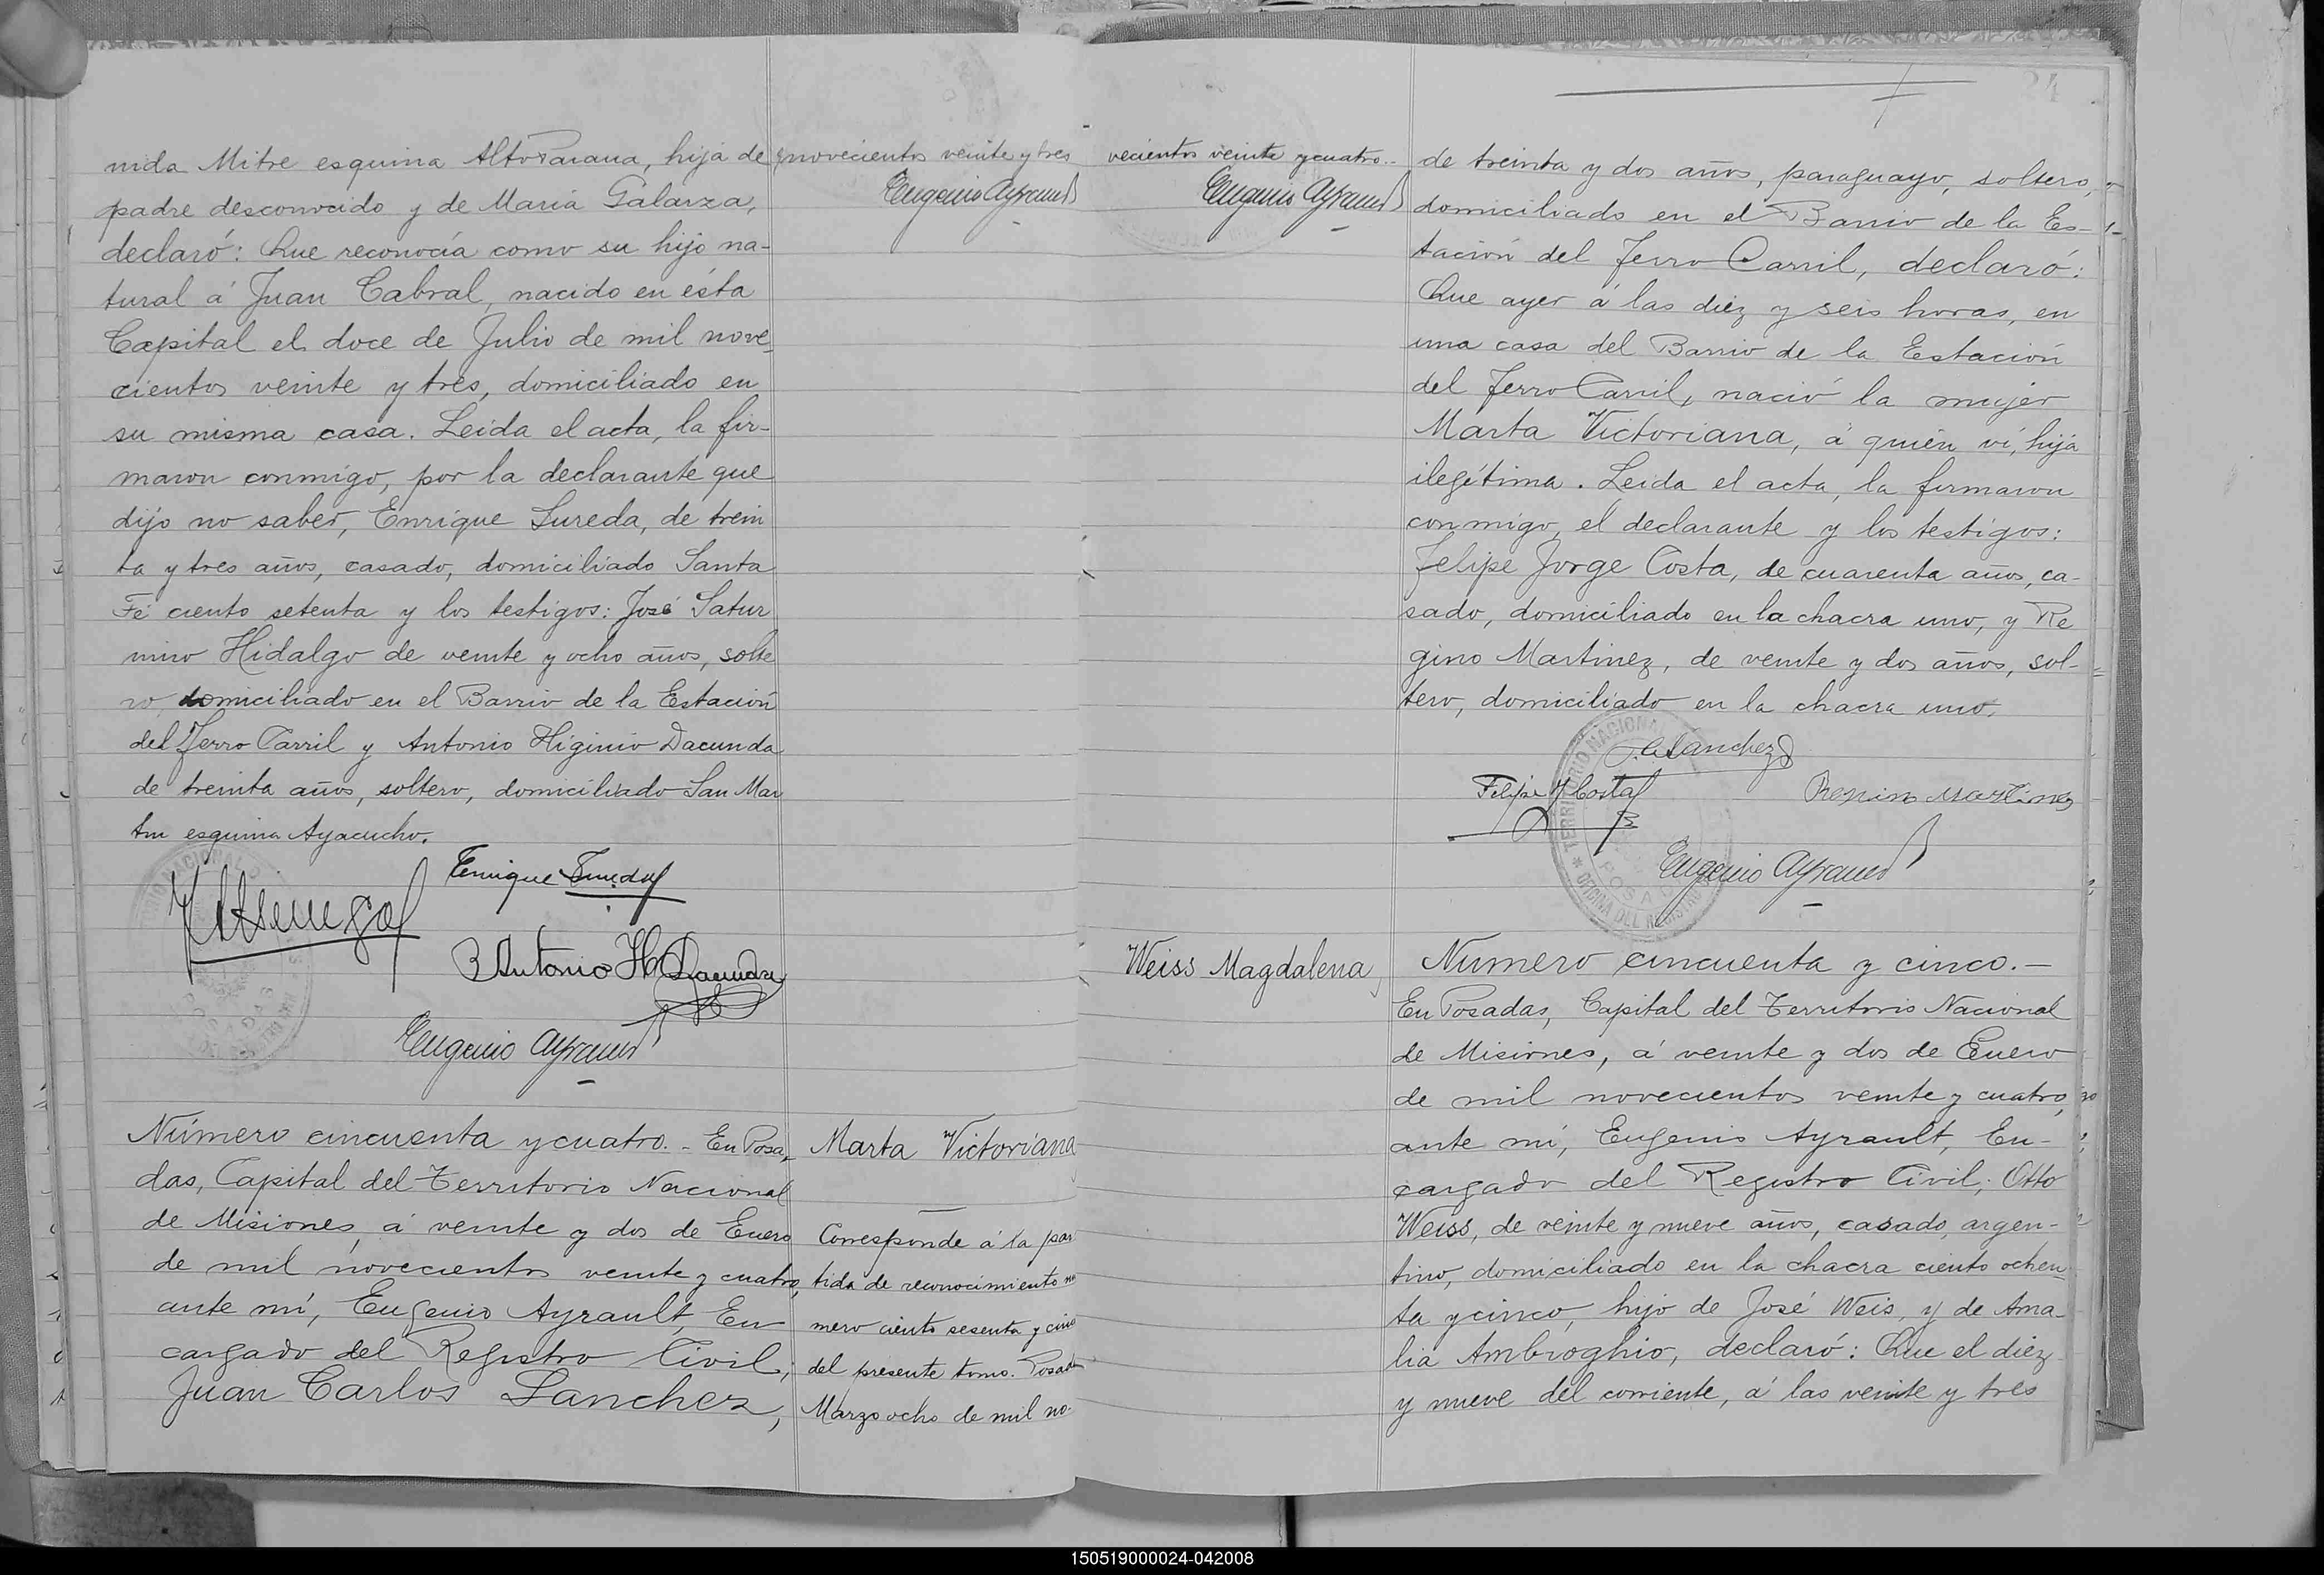 nida Mitre esquina Alto Parana, hija de
padre desconocido y de Maria Galarza,
declaró: Que reconocía como su hijo na-
tural á Juan Cabral, nacido en ésta
Capital el doce de Julio de mil nove-
cientos veinte y tres, domiciliado en
su misma casa. Leida el acta, la fir-
maron conmigo, por la declarante que
dijo no saber, Enrique Sureda, de trein
ta y tres años, casado, domiciliado Santa
Fé ciento setenta y los testigos: José Satur
nino Hidalgo de veinte y ocho años, solte
ro, domiciliado en el Barrio de la Estación
del Ferro Carril y Antonio Higinio Dacunda
de treinta años, soltero, domiciliado San Mar
tin esquina Ayacucho.
Enrique Sureda
Antonio H. Dacunda
Eugenio Ayrault
novecientos veinte y tres
Eugenio Ayrault
Número cincuenta y cuatro. - En Posa,
das, Capital del Territorio Nacional
de Misiones, á veinte y dos de Enero
de mil novecientos veinte y cuatro,
ante mí, Eugenio Ayrault, En
cargado del Registro Civil;
Juan Carlos Sanchez,
Marta Victoriana
Corresponde á la par
tida de reconocimiento nú
mero ciento sesenta y cinco
del presente tomo. Posadas
Marzo ocho de mil no-
vecientos veinte y cuatro.-
Eugenio Ayrault
24
de treinta y dos años, paraguayo, soltero,
domiciliado en el Barrio de la Es-
tación del Ferro Carril, declaró:
Que ayer á las diez y seis horas, en
una casa del Barrio de la Estación
del Ferro Carril, nació la mujer
Marta Victoriana, á quién ví, hija
ilegítima. Leida el acta, la firmaron
conmigo, el declarante y los testigos:
Felipe Jorge Costa, de cuarenta años, ca-
sado, domiciliado en la chacra uno, y Re
gino Martinez, de veinte y dos años, sol-
tero, domiciliado en la chacra uno.
J. C. Sanchez
Felipe J Costa
Regino Martinez
Eugenio Ayrault
Weiss Magdalena
Número cincuenta y cinco.-
En Posadas, Capital del Territorio Nacional
de Misiones, á veinte y dos de Enero
de mil novecientos veinte y cuatro,
ante mí, Eugenio Ayrault, En-
cargado del Registro Civil; Otto
Weiss, de veinte y nueve años, casado, argen-
tino, domiciliado en la chacra ciento ochen-
ta y cinco, hijo de José Weis, y de Ama-
lia Ambroghio, declaró: Que el diez
y nueve del corriente, á las veinte y tres
150519000024-042008